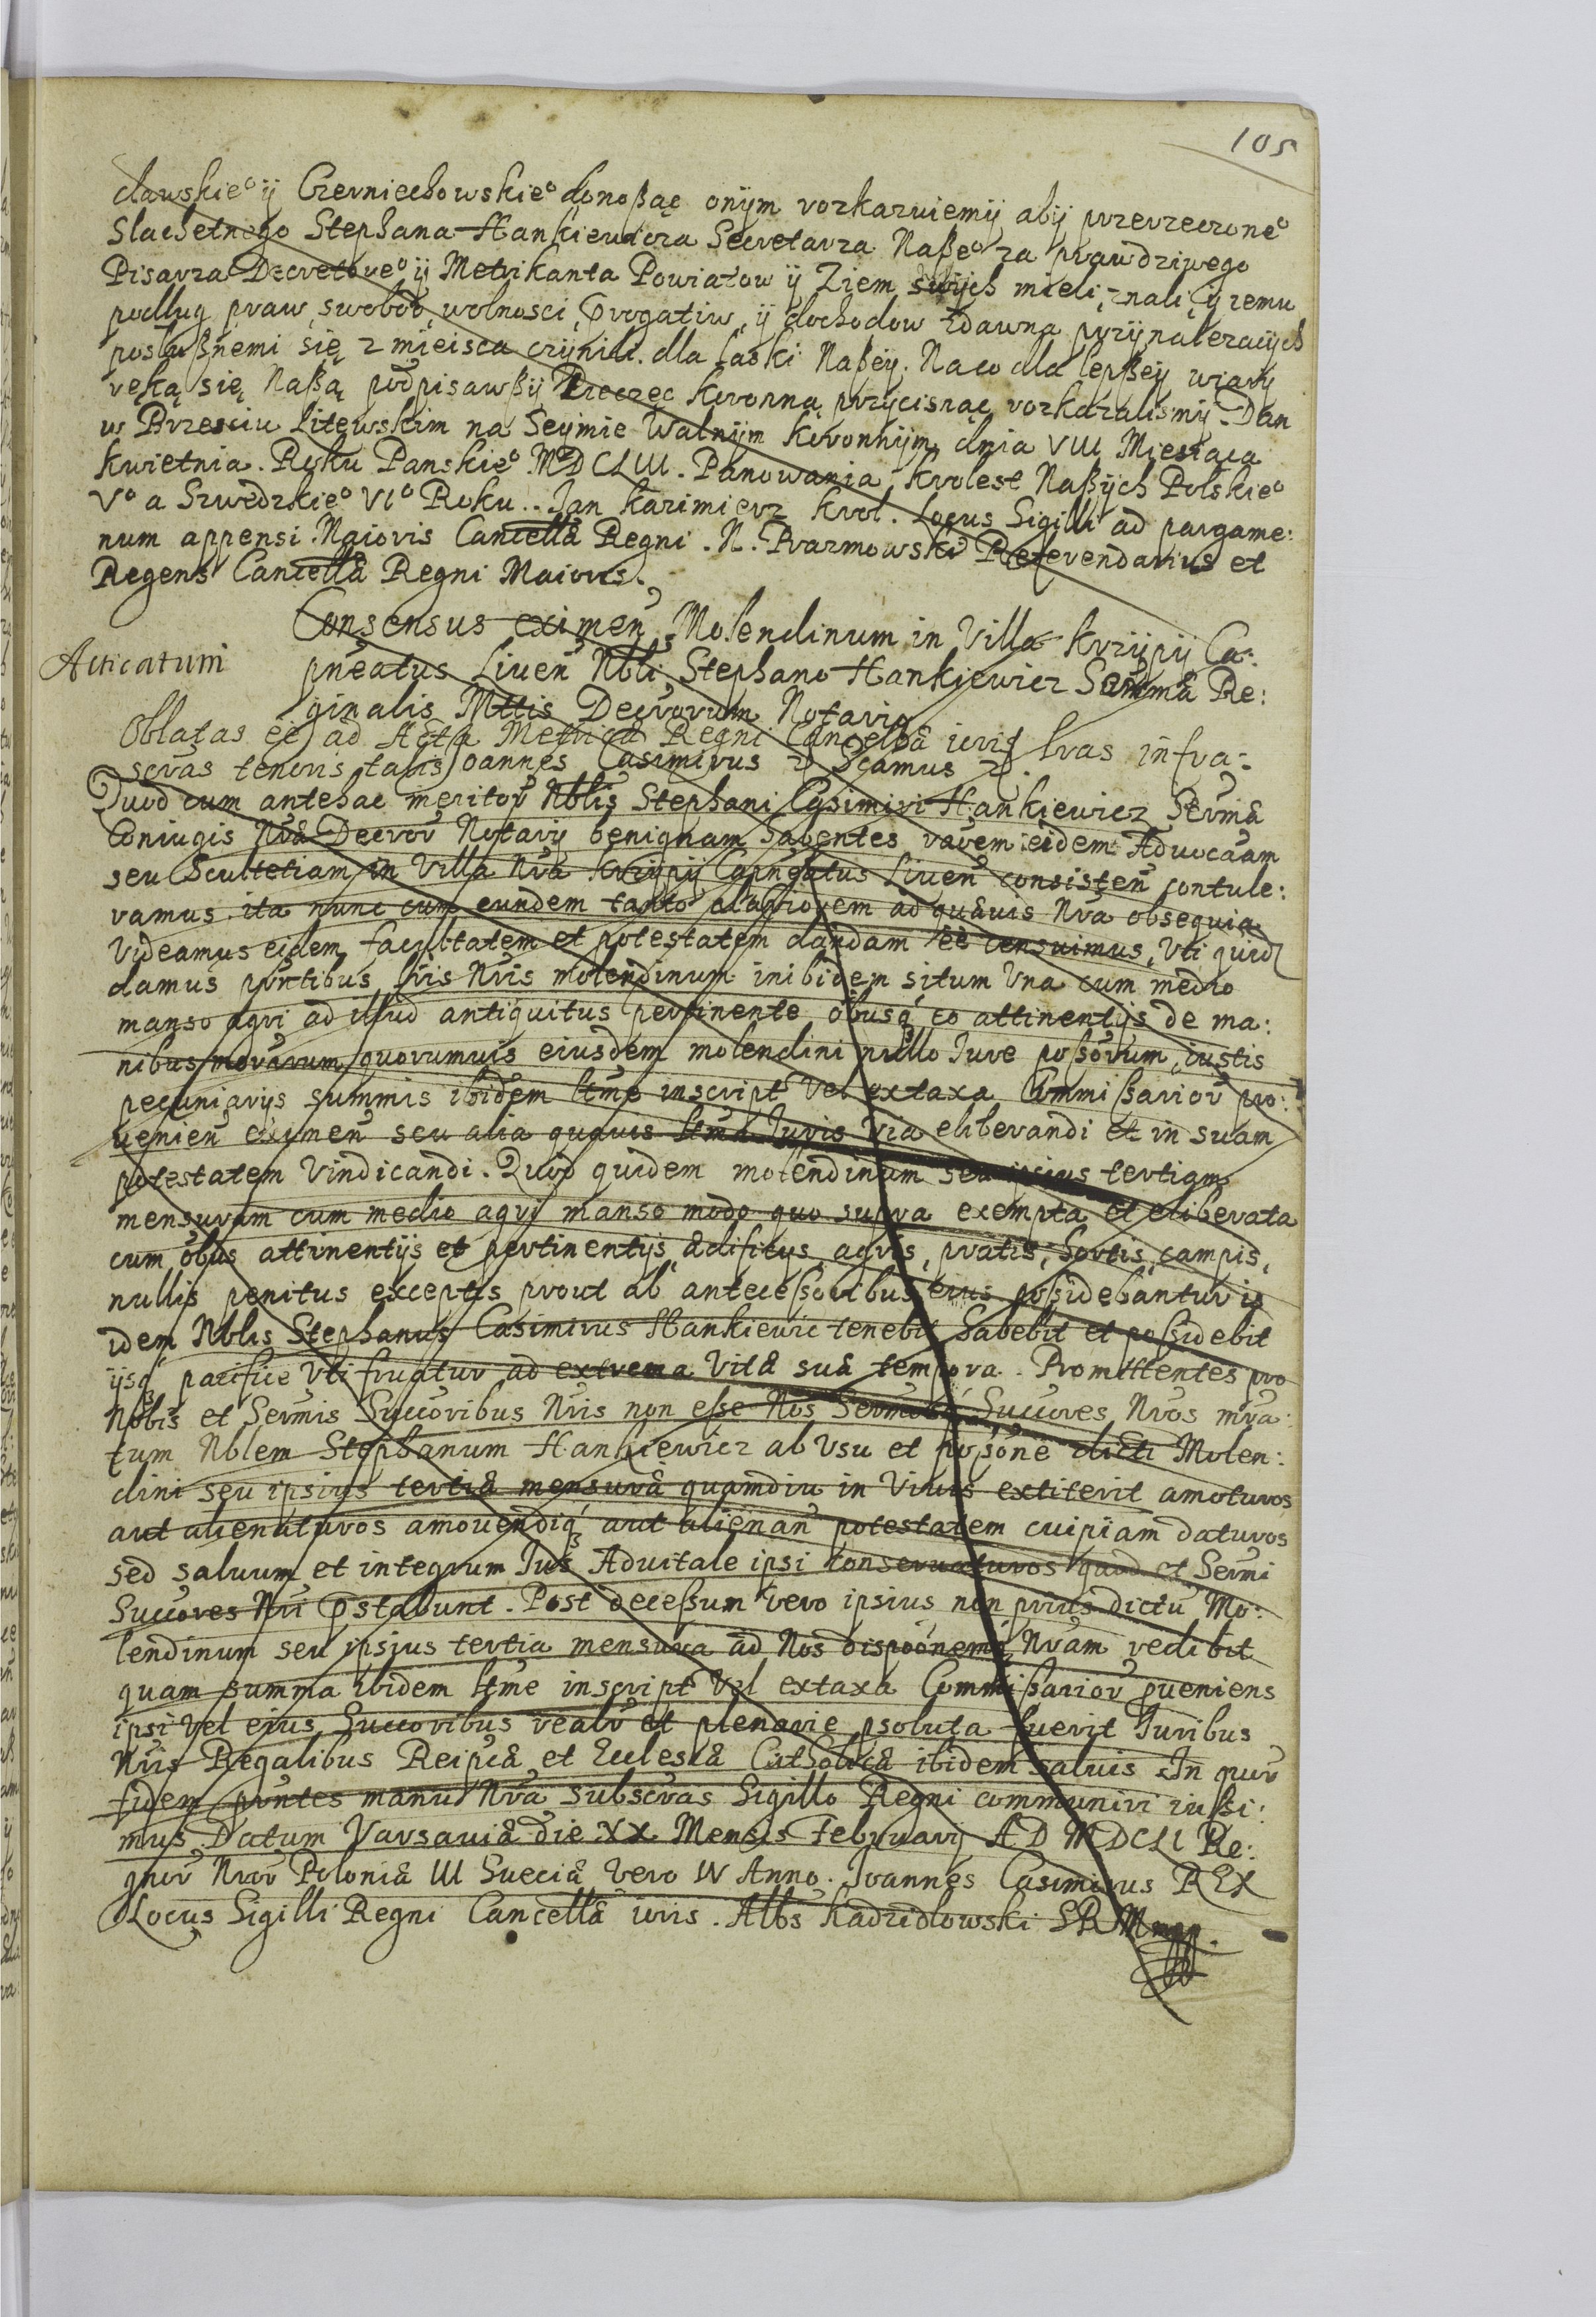 105
cławskie° ÿ Czerniechowskie° donoßąc onÿm rozkazuiemÿ abÿ przerzeczone°
Slachetnego Stephana Hankiewicza Secretarza Naße° za prawdziwego
Pisarza Decretowe° ÿ Metrikanta Powiatow ÿ Ziem swÿch mieli, znali, ÿ iemu
podług praw, swobod, wolnosci, Progatiw, ÿ dochodow zdawna przÿnalezacÿch
posłußnemi się z mieisca czÿnili. dla łaski Naßeÿ. Na co dla lepßeÿ wiarÿ
ręką się Naßą podpisawßÿ Pieczęc koronną przycisnąc rozkazalismÿ. Dan
w Brzesciu Litewskim na Seÿmie Walnÿm koronnÿm dnia VIII Miesiąca
kwietnia. Roku Panskie° MDCLIII. Panowania krolest Naßÿch Polskie°
V° a Szwedzkie° VI° Roku.. Jan kazimierz krol. Locus Sigilli ad pargame:
num appensi Maioris Cancellæ Regni. N. Prazmowski Referendarius et
Regens Cancellæ Regni Maioris.
Consensus eximen Molendinum in Villa krzÿpÿ Ca:
Acticatum
pneatus Liuen Nbli Stephano Hankiewicz Sæ Re:
ginalis Mttis Decrorum Notario
Oblatas eé ad Acta Metricæ Regni Cancellæ ieris lras infra:
scras tenoris talis Joannes Casimirus Scamus
Quod cum antehac meritor Nblis Stephani Casimiri Hankiewicz Sermæ
Coniugis Nræ Decror Notarÿ benignam habentes raoem eidem Aduocaam
seu Scultetiam in Villa Nra krzÿpÿ Capneatus Liuen consisten contule:
ramus. ita nunc cum eundem tanto alacriorem ad quæuis Nra obsequia
Videamus eidem facultatem et potestatem dandam eé censuimus, Vti quidē
damus pntibus lris Nris molendinum inibidem situm Vna cum medio
manso agri ad illud antiquitus pertinente oбusq co attinentÿs de ma:
nibus quorumuis eiusdem molendini nullo Iure poßorum, iustis
pecuniarÿs summis ibidem ltme inscript Vel extaxa Commißarior pro:
uenien eximen seu alia quauis ltma Juris Via eliberandi et in suam
potestatem Vindicandi. Quod quidem molendinum seu ipsius tertiam
mensuram cum medio agri manso modo quo supra exempta et eliberata
cum obus attinentÿs et pertinentÿs, ædificÿs, agris, pratis, hortis, campis,
nullis penitus exceptis prout ab anteceßoribus eius poßidebantur is
idem Nblis Stephanus Casimirus Hankiewic tenebit habebit et poßidebit
ÿsq pacifice Vti fruatur ad extrema Vitæ suæ tempora. Promittentes pro
Nobis et Sermis Succoribus Nris non eße Nos Sermosq Succores Nros mra:
tum Nblem Stephanum Hankiewicz ab Vsu et poßone dicti Molen:
dini seu ipsius tertiæ mensuræ quamdiu in Viuis extiterit amoturos
aut alienaturos amouendiq aut alienan potestatem cuipiam daturos
sed saluum et integrum Ius Aduitale ipsi conseruaturos quod et Sermi
Succores Nri Pstabunt. Post deceßum vero ipsius non prius dictu Mo:
lendinum seu ipsius tertia mensura ad Nos dispoonemq Nram redibit
quam summa ibidem ltme inscript Vel extaxa Commißarior pueniens
ipsi vel eius Succoribus realr et plenarie psoluta fuerit Iuribus
Nris Regalibus Reipcæ et Ecclesiæ Catholicæ ibidem saluis. In quor
fidem pntes manu Nra Subscras Sigillo Regni communiri iußi:
mus. Datum Varsauiæ die XX Mensis Februarÿ AD MDCLI Re:
gnor Nror Poloniæ III Sueciæ Vero IV Anno. Joannes Casimirus REX
Locus Sigilli Regni Cancellæ ioris. Albs kadzidlowski SRM